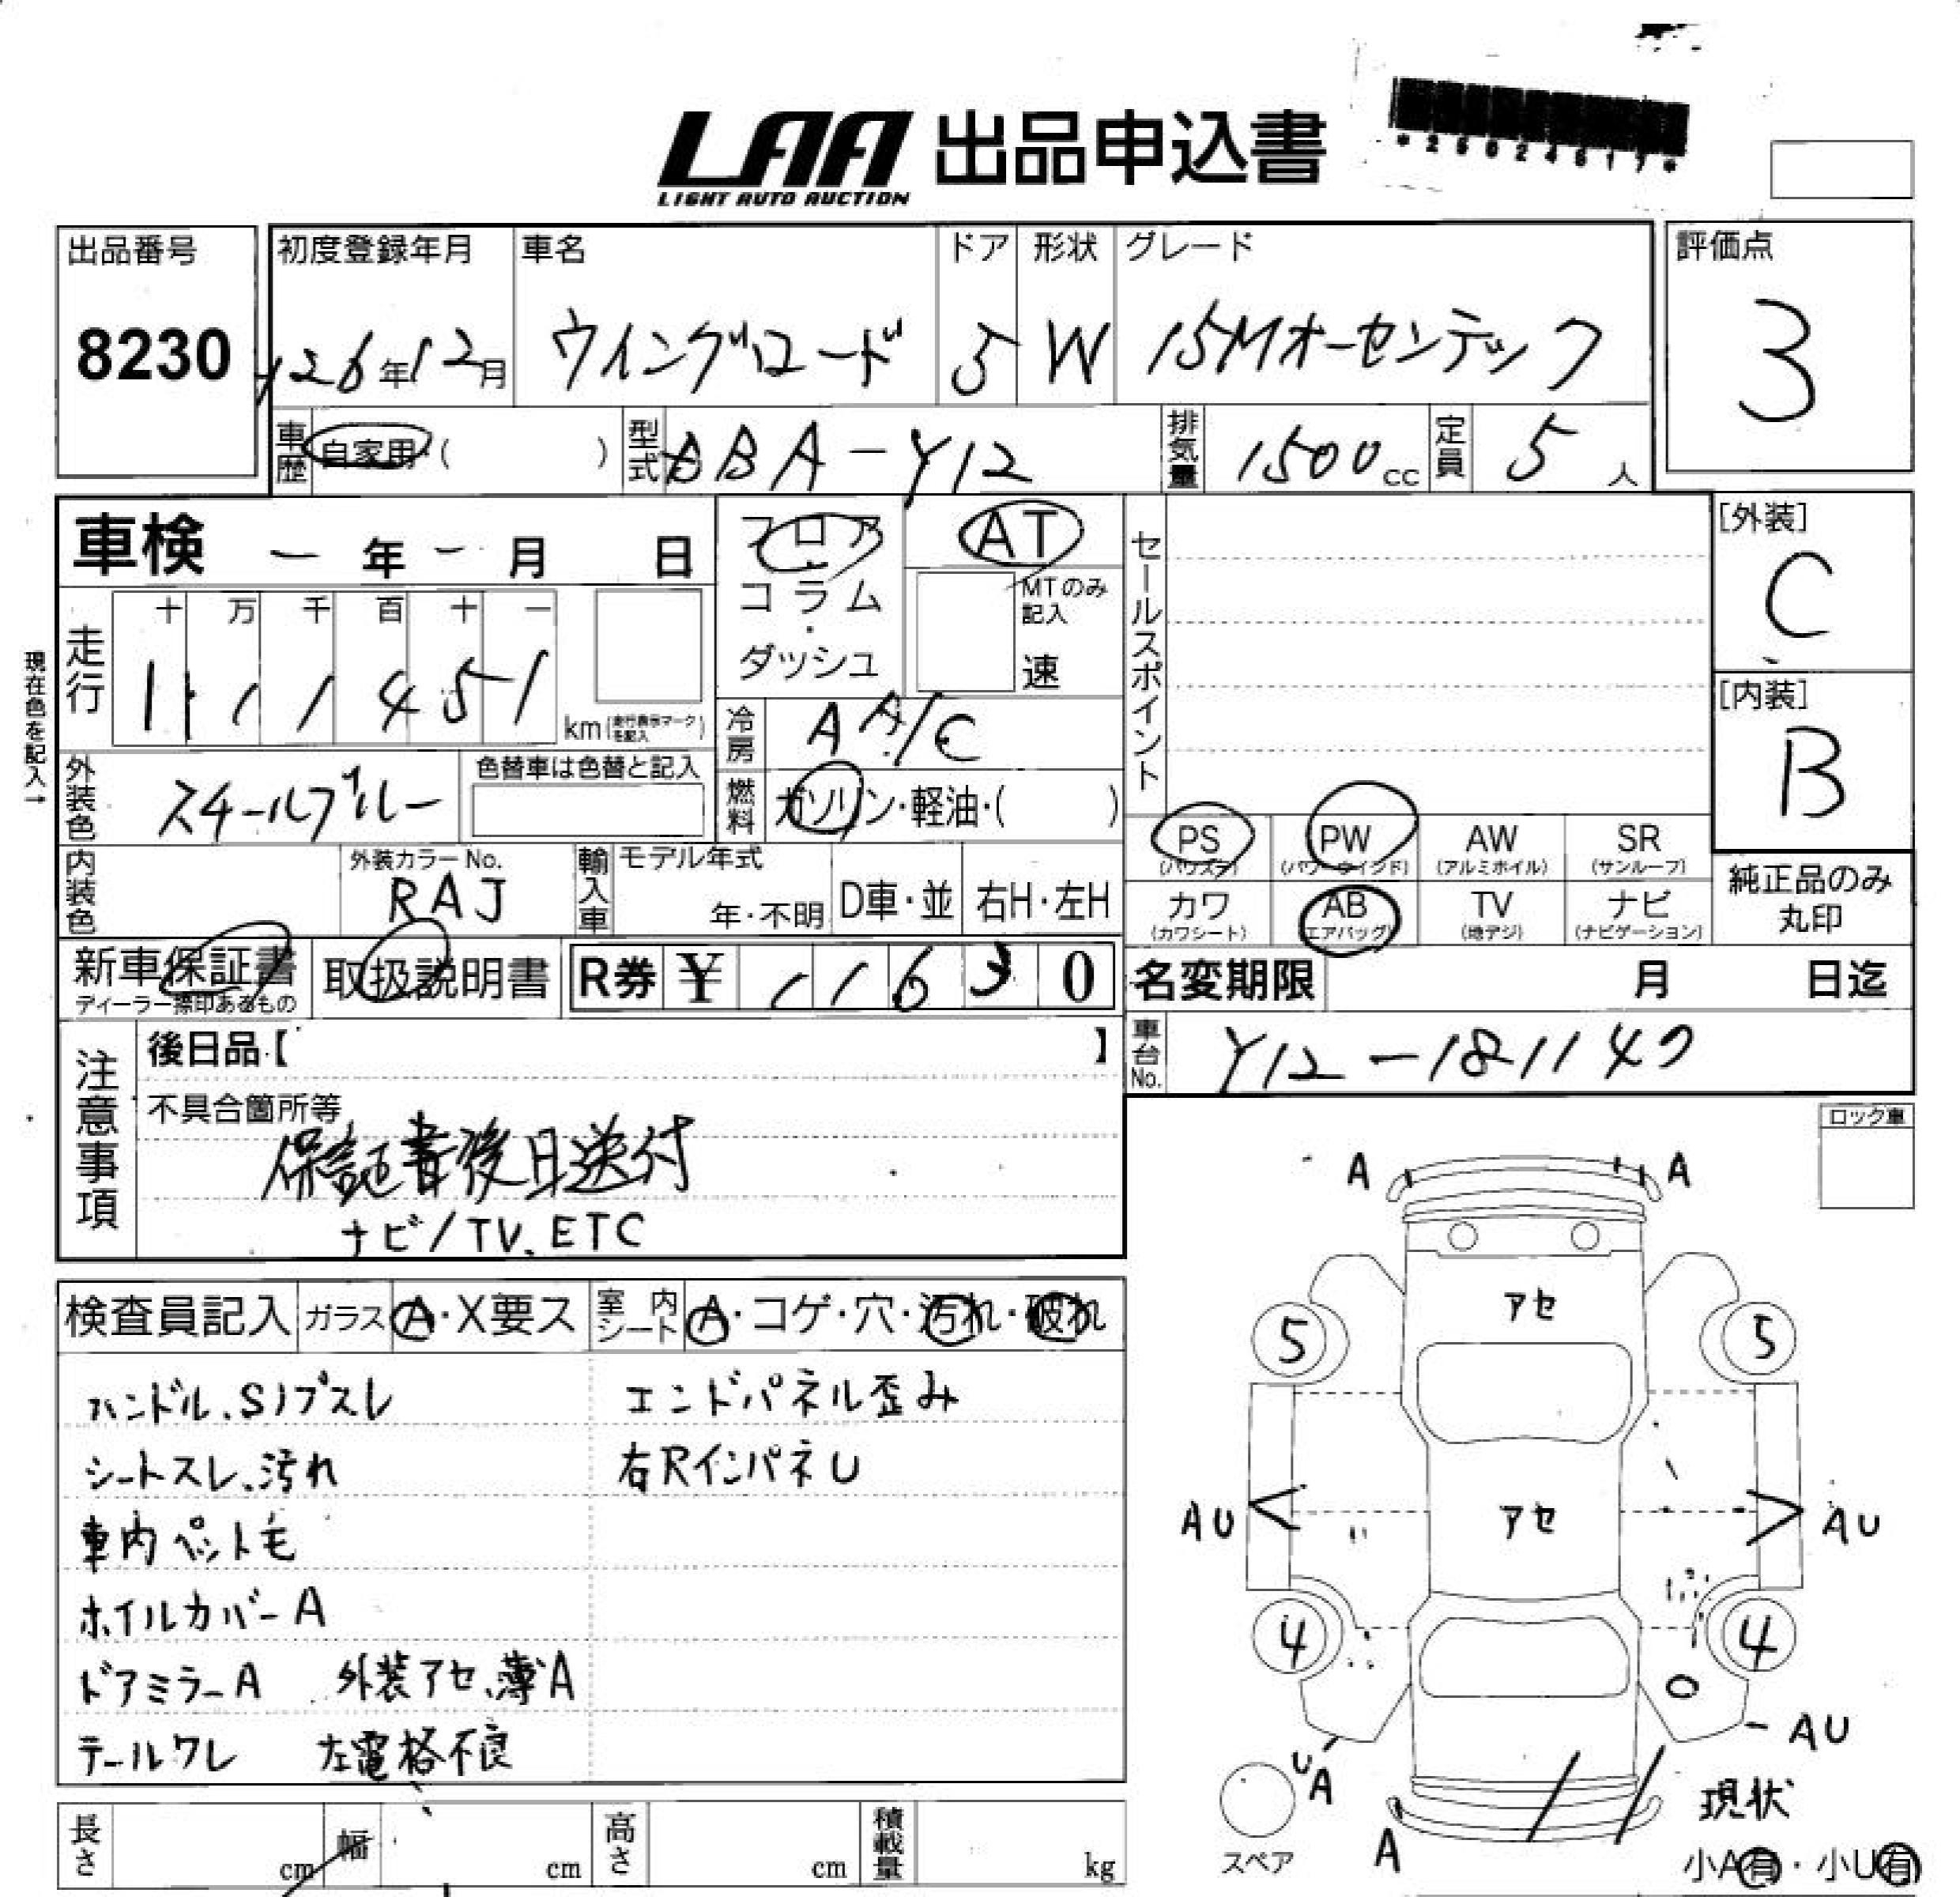 LAA 出品申込書
LIGHT AUTO AUCTION
*26024617*
出品番号 初度登録年月 車名 ドア 形状 グレード 評価点
8230 H26年12月 ウイングロード 5 W 15Mオーセンテック 3
車歴 自家用・( ) 型式 DBA-Y12 排気量 1500cc 定員 5人
車検 ー年ー月 日 フロア・コラム・ダッシュ AT MTのみ記入 速
セールスポイント
[外装] C
現在色を記入→
走行 十万千百十一
111451 km(走行表示マークを記入)
冷房 AA/C
[内装] B
外装色 スチールブルー 色替車は色替と記入 燃料 ガソリン・軽油・( )
PS (パワステ) PW (パワーウインド) AW (アルミホイル) SR (サンルーフ)
内装色 外装カラーNo. RAJ 輸入車 モデル年式 年・不明 D車・並 右H・左H
カワ (カワシート) AB (エアバッグ) TV (地デジ) ナビ (ナビゲーション)
純正品のみ丸印
新車保証書 ディーラー標印あるもの 取扱説明書 R券 ¥ 11630 名変期限 月 日迄
注意事項 後日品【 】 車台No. Y12-181147
不具合箇所等
保証書後日送付
ナビ/TV、ETC
ロック車
検査員記入 ガラス A・X要ス 室内シート A・コゲ・穴・汚れ・破れ
ハンドル、Sノブスレ エンドパネル歪み
シートスレ、汚れ 右RインパネU
車内ペット毛
ホイルカバーA
ドアミラーA 外装アセ、薄A
テールワレ 左電格不良
A A
アセ
5 5
AU アセ AU
4 4
AU
UA
スペア A
現状
小A有・小U有
長さ cm 幅 cm 高さ cm 積載量 kg